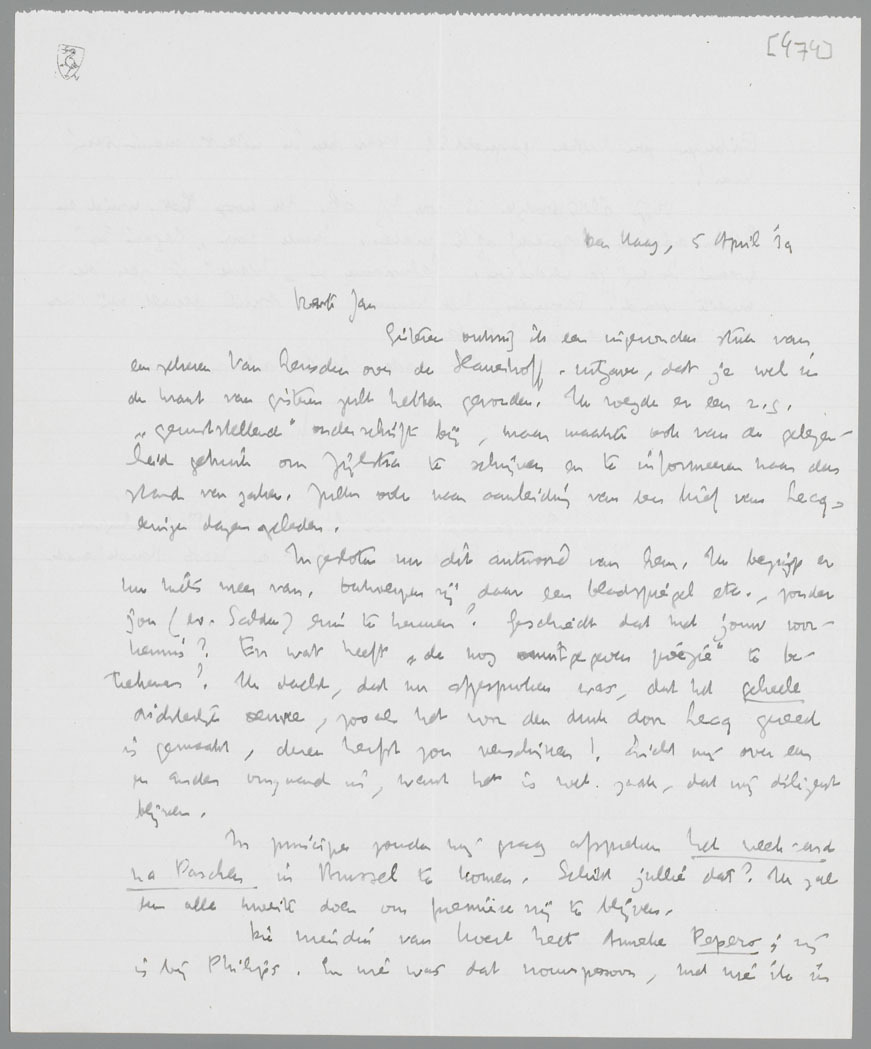 [474]
Den Haag, 5 April '39
Beste Jan
Gisteren ontving ik een ingezonden stuk van
een zekeren Van Heusden over de Slauerhoff-uitgave, dat je wel in
de krant van gisteren zult hebben gevonden. Ik voegde er een z.g.
„geruststellend" onderschrift bij, maar maakte ook van de gelegen-
heid gebruik om Zijlstra te schrijven en te informeeren naar den
stand van zaken. Zulks ook naar aanleiding van een brief van Lecq,
eenige dagen geleden.
Ingesloten nu dit antwoord van hem. Ik begrijp er
nu niets meer van. Ontwerpen zij daar een bladspiegel etc., zonder
jou (en Salden) erin te kennen? Geschiedt dat met jouw voor-
kennis? En wat heeft „de nog onuitgegeven poëzie" te be-
teekenen? Ik dacht, dat nu afgesproken was, dat het geheele
dichterlijk oeuvre, zooals het voor den druk door Lecq gereed
is gemaakt, dezen herfst zou verschijnen! Licht mij over een
en ander omgaand in, want het is wel zaak, dat wij diligent
blijven.
In principe zouden wij graag afspreken het week-end
na Paschen in Brussel te komen. Schikt jullie dat? Ik zal
dan alle moeite doen om premièrevrij te blijven.
Die vriendin van hoert heet Anneke Pepers; zij
is bij Philips. En wie was dat nouwpersoon, met wie ik in